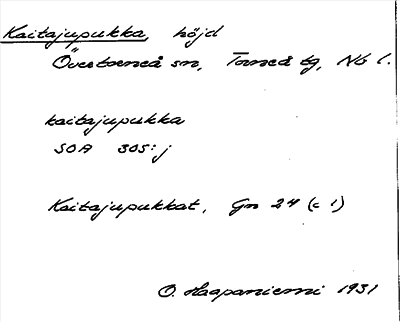 Kaitajupukka, höjd
Övertorneå sn, Torneå tg, Nb l.
kaitajupukka
SOA 305:j
Kaitajupukkat, Gn 24 (c 1)
O. Haapaniemi 1931